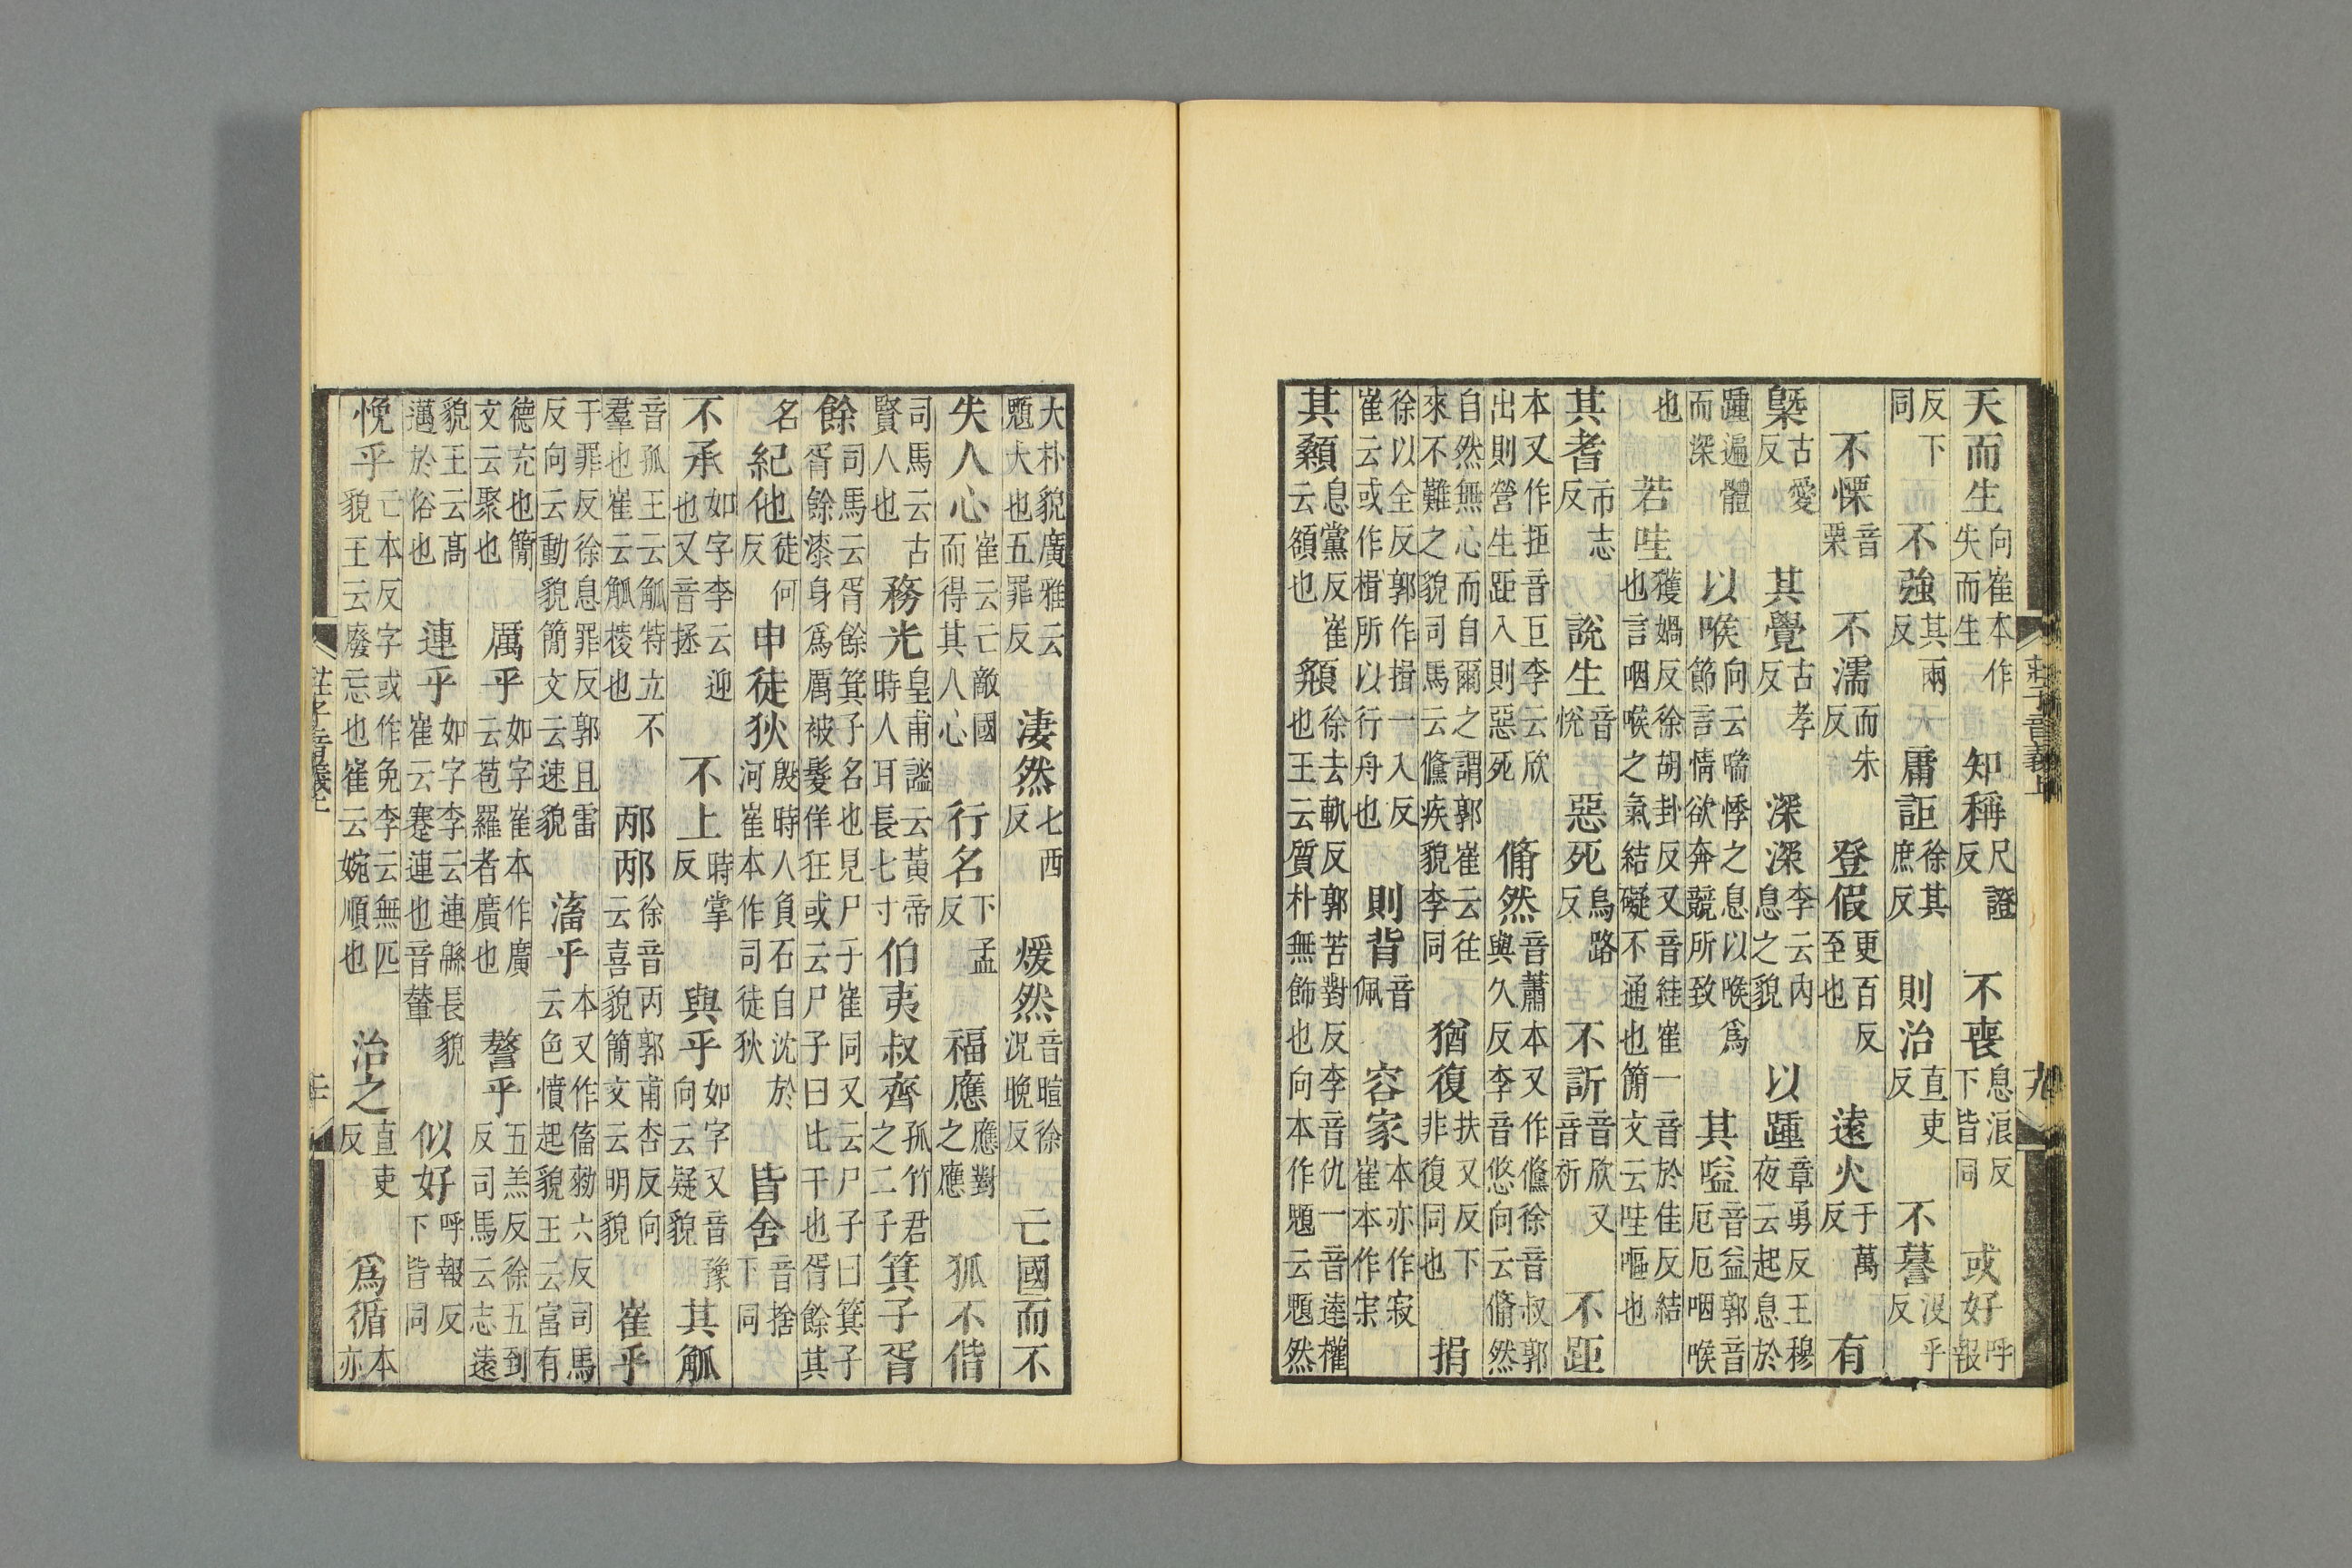 天而生向崔本作失而生知稱尺證反不喪息浪反下皆同或好呼報
反下同不強其兩反庸詎徐其庶反則治直吏反不謩沒乎反
不慄音栗不濡而朱反登假更百反至也遠火于萬反有
槩古愛反其覺古孝反深深李云內息之貌以踵章勇反王穆夜云起息於
踵遍體而深以喉向云喘悸之息以喉爲節言情欲奔競所致其嗌音益郭音厄厄咽喉
也若哇獲媧反徐胡卦反又音絓崔一音於佳反結也言咽喉之氣結礙不通也簡文云哇嘔也
其耆市志反說生音悅惡死烏路反不訢音欣又音祈不距
本又作拒音巨李云欣出則營生距入則惡死翛然音蕭本又作儵徐音叔郭與久反李音悠向云翛然
自然無心而自爾之謂郭崔云往來不難之貌司馬云儵疾貌李同猶復扶又反下非復同也捐
徐以全反郭作揖一入反崔云或作楫所以行舟也則背音佩容家本亦作寂崔本作宋
其顙息黨反崔云額也頯徐去軌反郭苦對反李音仇一音逵權也王云質朴無飾也向本作䫥云䫥然
大朴貌廣雅云䫥大也五罪反淒然七西反煖然音暄徐況晚反亡國而不
失人心崔云亡敵國而得其人心行名下孟反福應應對之應狐不偕
司馬云古賢人也務光皇甫謐云黃帝時人耳長七寸伯夷叔齊孤竹君之二子箕子胥
餘司馬云胥餘箕子名也見尸子崔同又云尸子曰箕子胥餘漆身爲厲被髮佯狂或云尸子曰比干也胥餘其
名紀他徒何反申徒狄殷時人負石自沈於河崔本作司徒狄皆舍音捨下同
不承如字李云迎也又音拯不上時掌反與乎如字又音豫向云疑貌其觚
音孤王云觚特立不羣也崔云觚棱也邴邴徐音丙郭甫杏反向云喜貌簡文云明貌崔乎
于罪反徐息罪反郭且雷反向云動貌簡文云速貌滀乎本又作傗勑六反司馬云色憤起貌王云富有
德充也簡文云聚也厲乎如字崔本作廣云苞羅者廣也謷乎五羔反徐五到反司馬云志遠
貌王云高邁於俗也連乎如字李云連緜長貌崔云蹇連也音輦似好呼報反下皆同
悗乎亡本反字或作免李云無匹貌王云廢忘也崔云婉順也治之直吏反爲循本亦